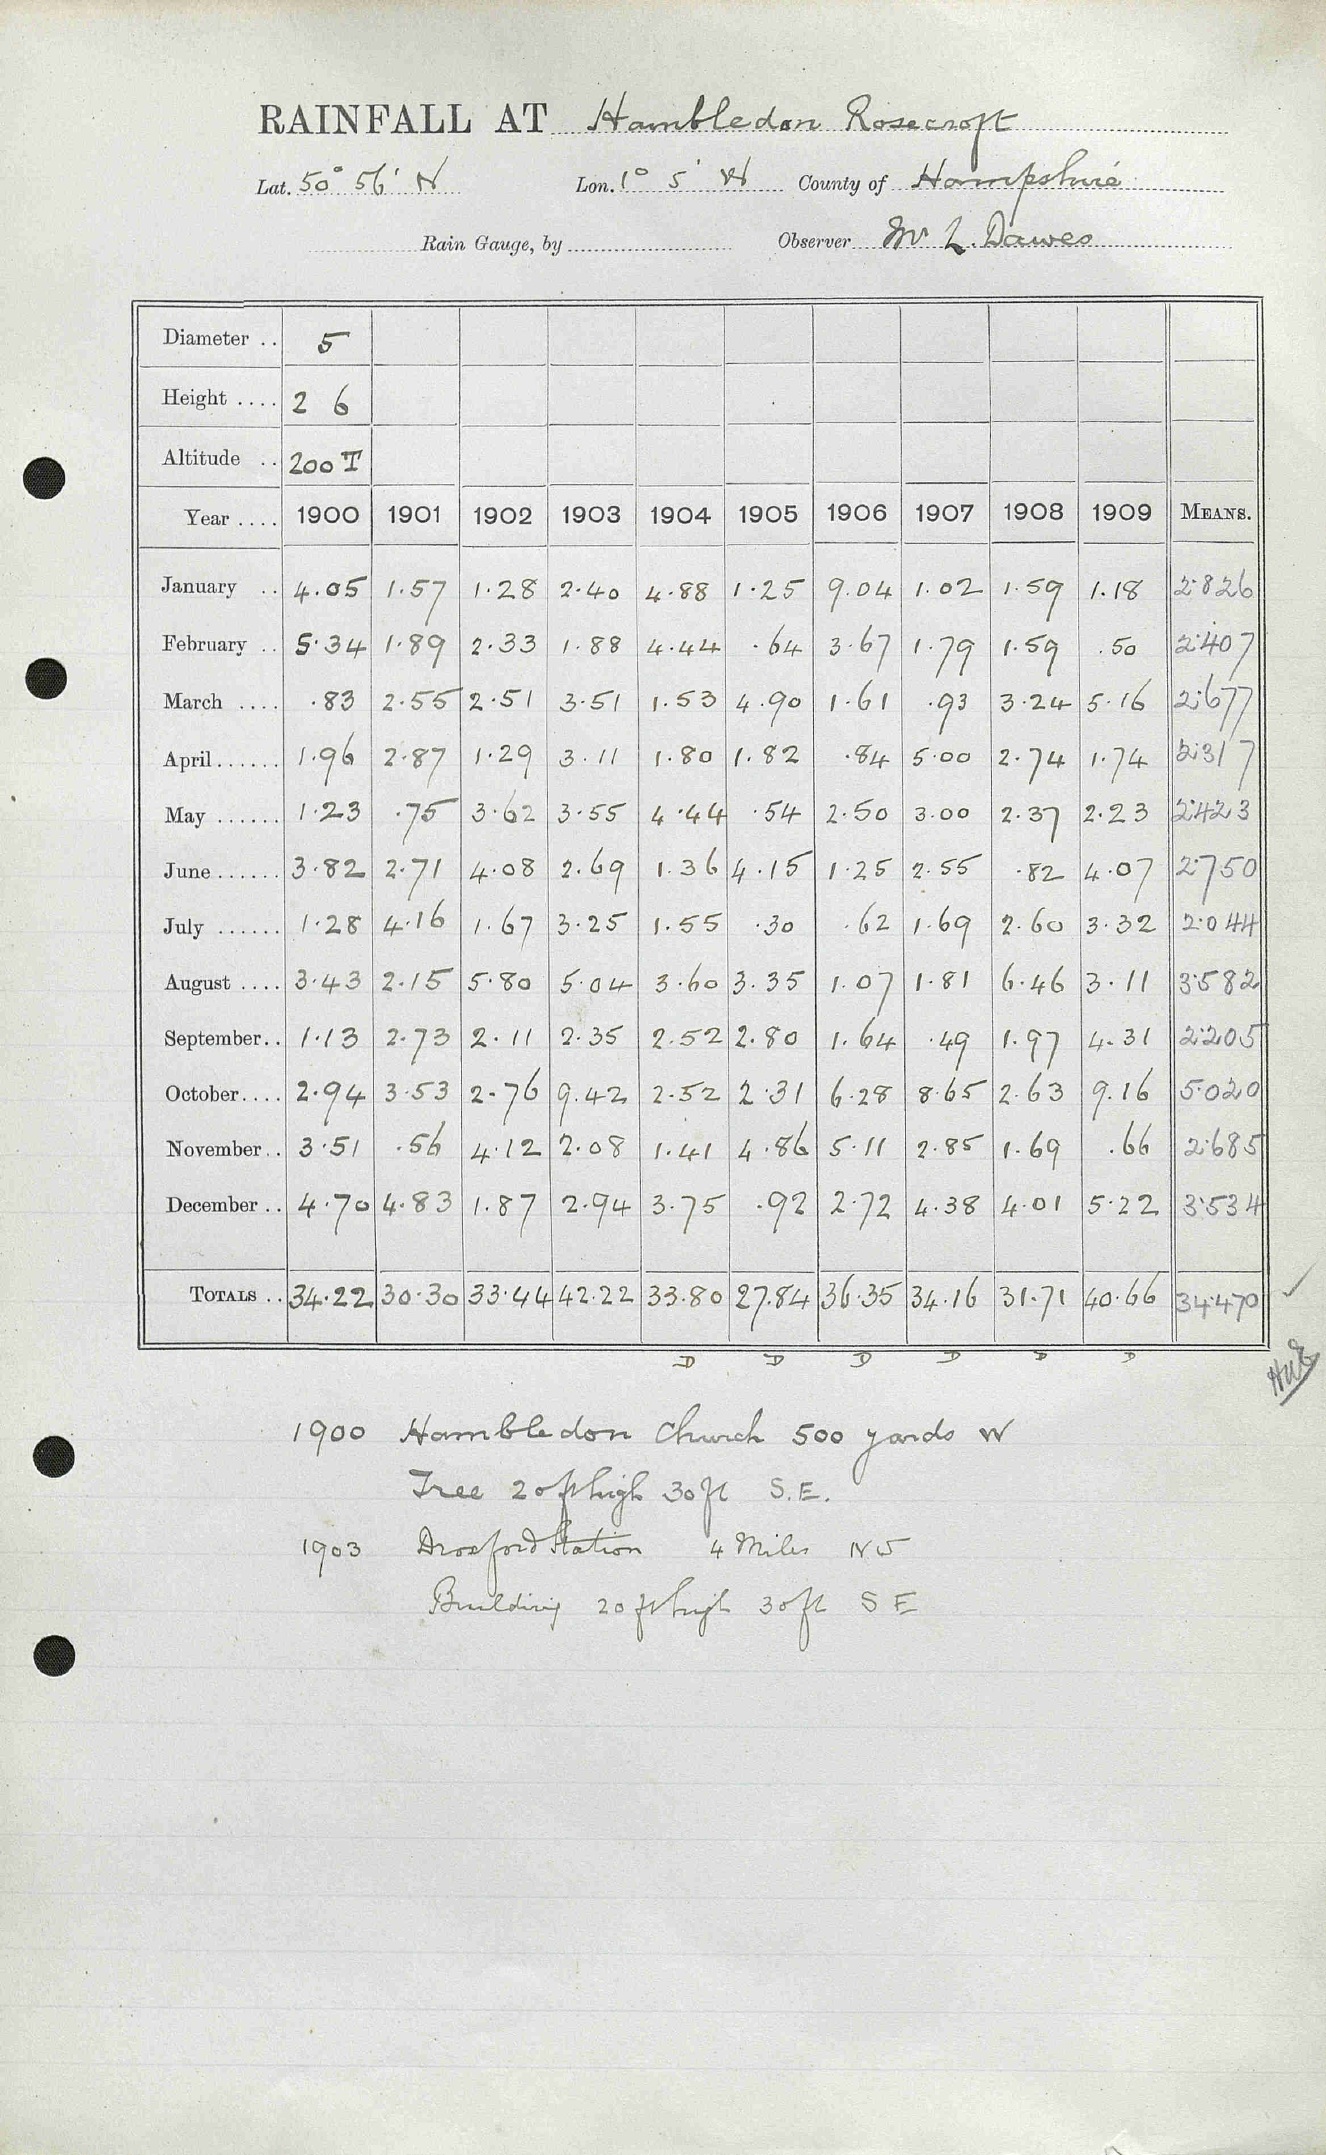 RAINFALL AT Hambledon Rosecroft
Lat. 50° 56' N Lon. 1° 5' W County of Hampshire
Rain Gauge, by Observer L. Dawes
Diameter .. 5
Height .... 2 6
Altitude .. 200 T
Year .... 1900 1901 1902 1903 1904 1905 1906 1907 1908 1909 MEANS.
January .. 4.05 1.57 1.28 2.40 4.88 1.25 9.04 1.02 1.59 1.18 2.826
February .. 5.34 1.89 2.33 1.88 4.44 .64 3.67 1.79 1.59 .50 2.407
March .... .83 2.55 2.51 3.51 1.53 4.90 1.61 .93 3.24 5.16 2.677
April...... 1.96 2.87 1.29 3.11 1.80 1.82 .84 5.00 2.74 1.74 2.317
May ...... 1.23 .75 3.62 3.55 4.44 .54 2.50 3.00 2.37 2.23 2.423
June...... 3.82 2.71 4.08 2.69 1.36 4.15 1.25 2.55 .82 4.07 2.750
July ...... 1.28 4.16 1.67 3.25 1.55 .30 .62 1.69 2.60 3.32 2.044
August .... 3.43 2.15 5.80 5.04 3.60 3.35 1.07 1.81 6.46 3.11 3.582
September.. 1.13 2.73 2.11 2.35 2.52 2.80 1.64 .49 1.97 4.31 2.205
October.... 2.94 3.53 2.76 9.42 2.52 2.31 6.28 8.65 2.63 9.16 5.020
November.. 3.51 .56 4.12 2.08 1.41 4.86 5.11 2.85 1.69 .66 2.685
December .. 4.70 4.83 1.87 2.94 3.75 .92 2.72 4.38 4.01 5.22 3.534
TOTALS .. 34.22 30.30 33.44 42.22 33.80 27.84 36.35 34.16 31.71 40.66 34.470
D D D D D D
1900 Hambledon Church 500 yards W
Tree 20ft high 30ft S.E.
1903 Droxford Station 4 Miles NW
Building 20 ft high 30ft S E